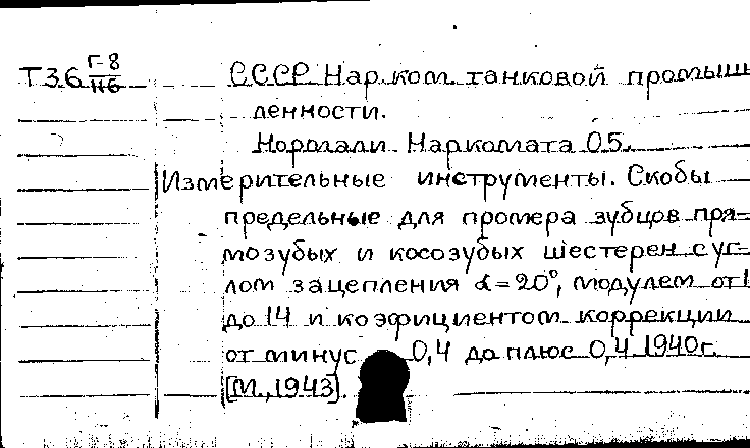 Т36 Г-8/116 СССР Нар.ком. танковой промыш
ленности.
Нормали Наркомата 05.
Измерительные инструменты. Скобы
предельные для промера зубцов пря-
мозубых и косозубых шестерен с уг-
лом зацепления α=20°, модулем от 1
до 14 и коэфициентом коррекции
от минус 0,4 до плюс 0,4 1940г.
[М., 1943].